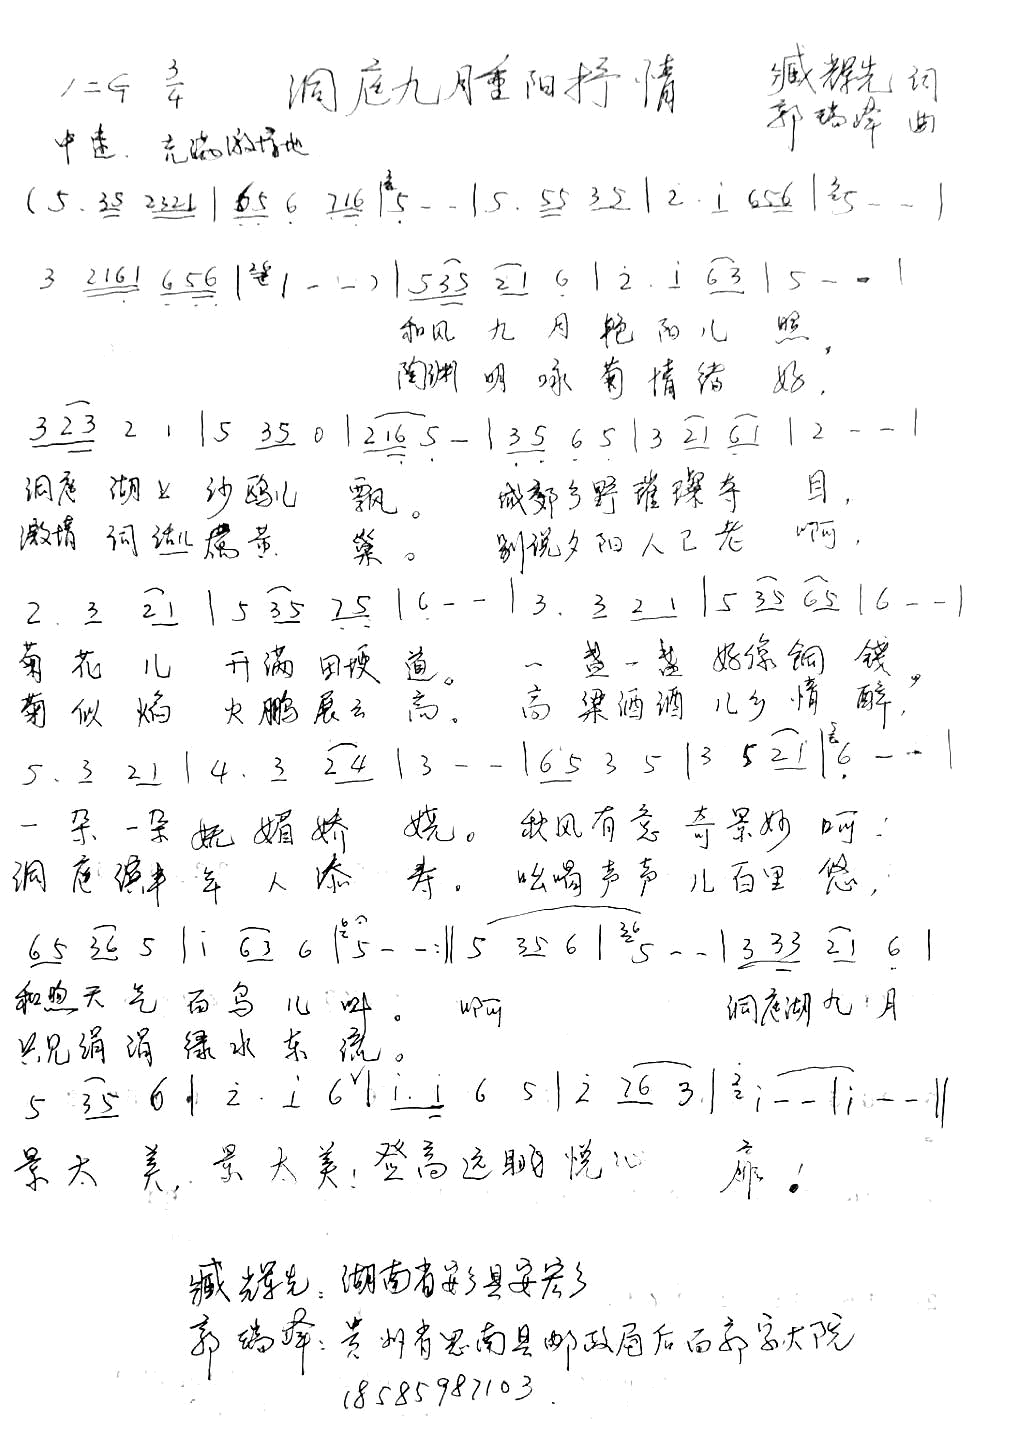 1=G 3/4 洞庭九月重阳抒情 臧辉先 词
郭瑞峰 曲
中速. 充满激情地
(5. 35 2321 | 65 6 716 | 5 - - | 5. 55 35 | 2. i 656 | 5 - - |
3 2161 656 | 1 - - ) | 535 21 6 | 2. i 63 | 5 - - |
和风 九 月 艳 阳 儿 照,
陶渊 明 咏 菊 情 绪 好,
323 2 1 | 5 35 0 | 216 5 - | 35 6 5 | 3 21 61 | 2 - - |
洞庭 湖上 沙鸥儿 飘。 城郊乡野璀璨夺 目,
激情 词话儿 黄 巢。 别说夕阳人已老 啊,
2. 3 21 | 5 35 75 | 6 - - | 3. 3 21 | 5 35 65 | 6 - - |
菊 花 儿 开满田埂 道。 一 盏一盏 好像铜 钱,
菊 似 焰 火鹏展云 高。 高 粱酒酒 儿乡 情 醉,
5. 3 21 | 4. 3 24 | 3 - - | 65 3 5 | 3 5 21 | 6 - - |
一 朵 一朵 妩 媚 娇 娆。 秋风有意 奇景妙 呵!
洞 庭 年 人 添 寿。 吆喝声声 儿百里 悠,
65 36 5 | i 63 6 | 5 - - :|| 5 35 6 | 5 - - | 333 21 6 |
和煦天 气 百鸟 儿 叫。 啊 洞庭湖 九 月
只见绢涓 绿 水 东 流。
5 35 6 | 2. i 6 | i. i 6 5 | 2 26 3 | i - - | i - - ||
景 太 美, 景 太 美! 登高远眺 悦心 扉!
臧辉先: 湖南省安乡县安宏乡
郭瑞峰: 贵州省思南县邮政局后面郭家大院
18585987103.